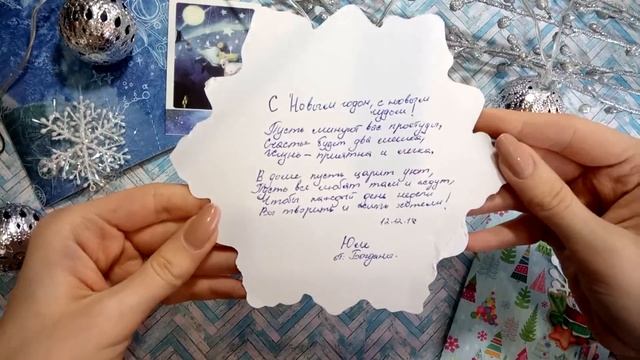 С Новым годом, с новым
чудом!
Пусть минуют вас простуды,
Счастье будет два мешка,
Жизнь - приятна и легка.
В доме пусть царит уют,
Пусть все любят там и ждут,
Чтобы каждый день недели
Вы творить и жить хотели!
12.12.18
Юле
от Богданы.